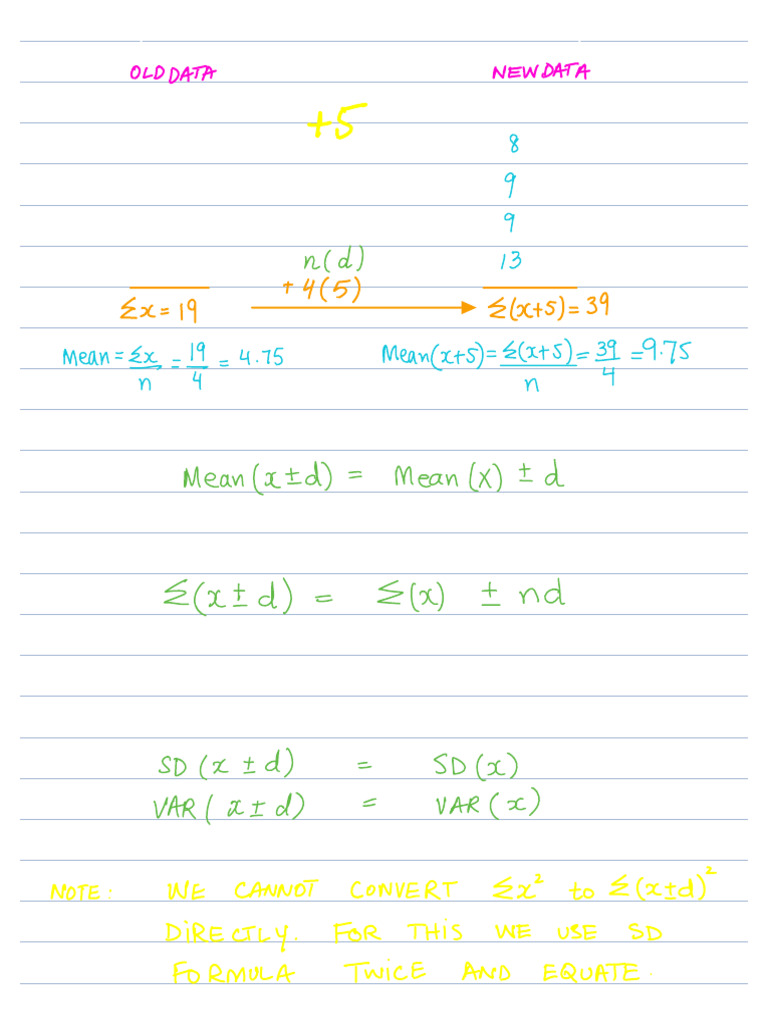 OLD DATA NEW DATA
+5
8
9
9
n(d) 13
+ 4(5)
Σx = 19 Σ(x+5) = 39
Mean = Σx/n = 19/4 = 4.75 Mean(x+5) = Σ(x+5)/n = 39/4 = 9.75
Mean(x±d) = Mean(x) ± d
Σ(x±d) = Σ(x) ± nd
SD(x ±d) = SD(x)
VAR(x±d) = VAR(x)
NOTE: WE CANNOT CONVERT Σx² to Σ(x±d)²
DIRECTLY. FOR THIS WE USE SD
FORMULA TWICE AND EQUATE.